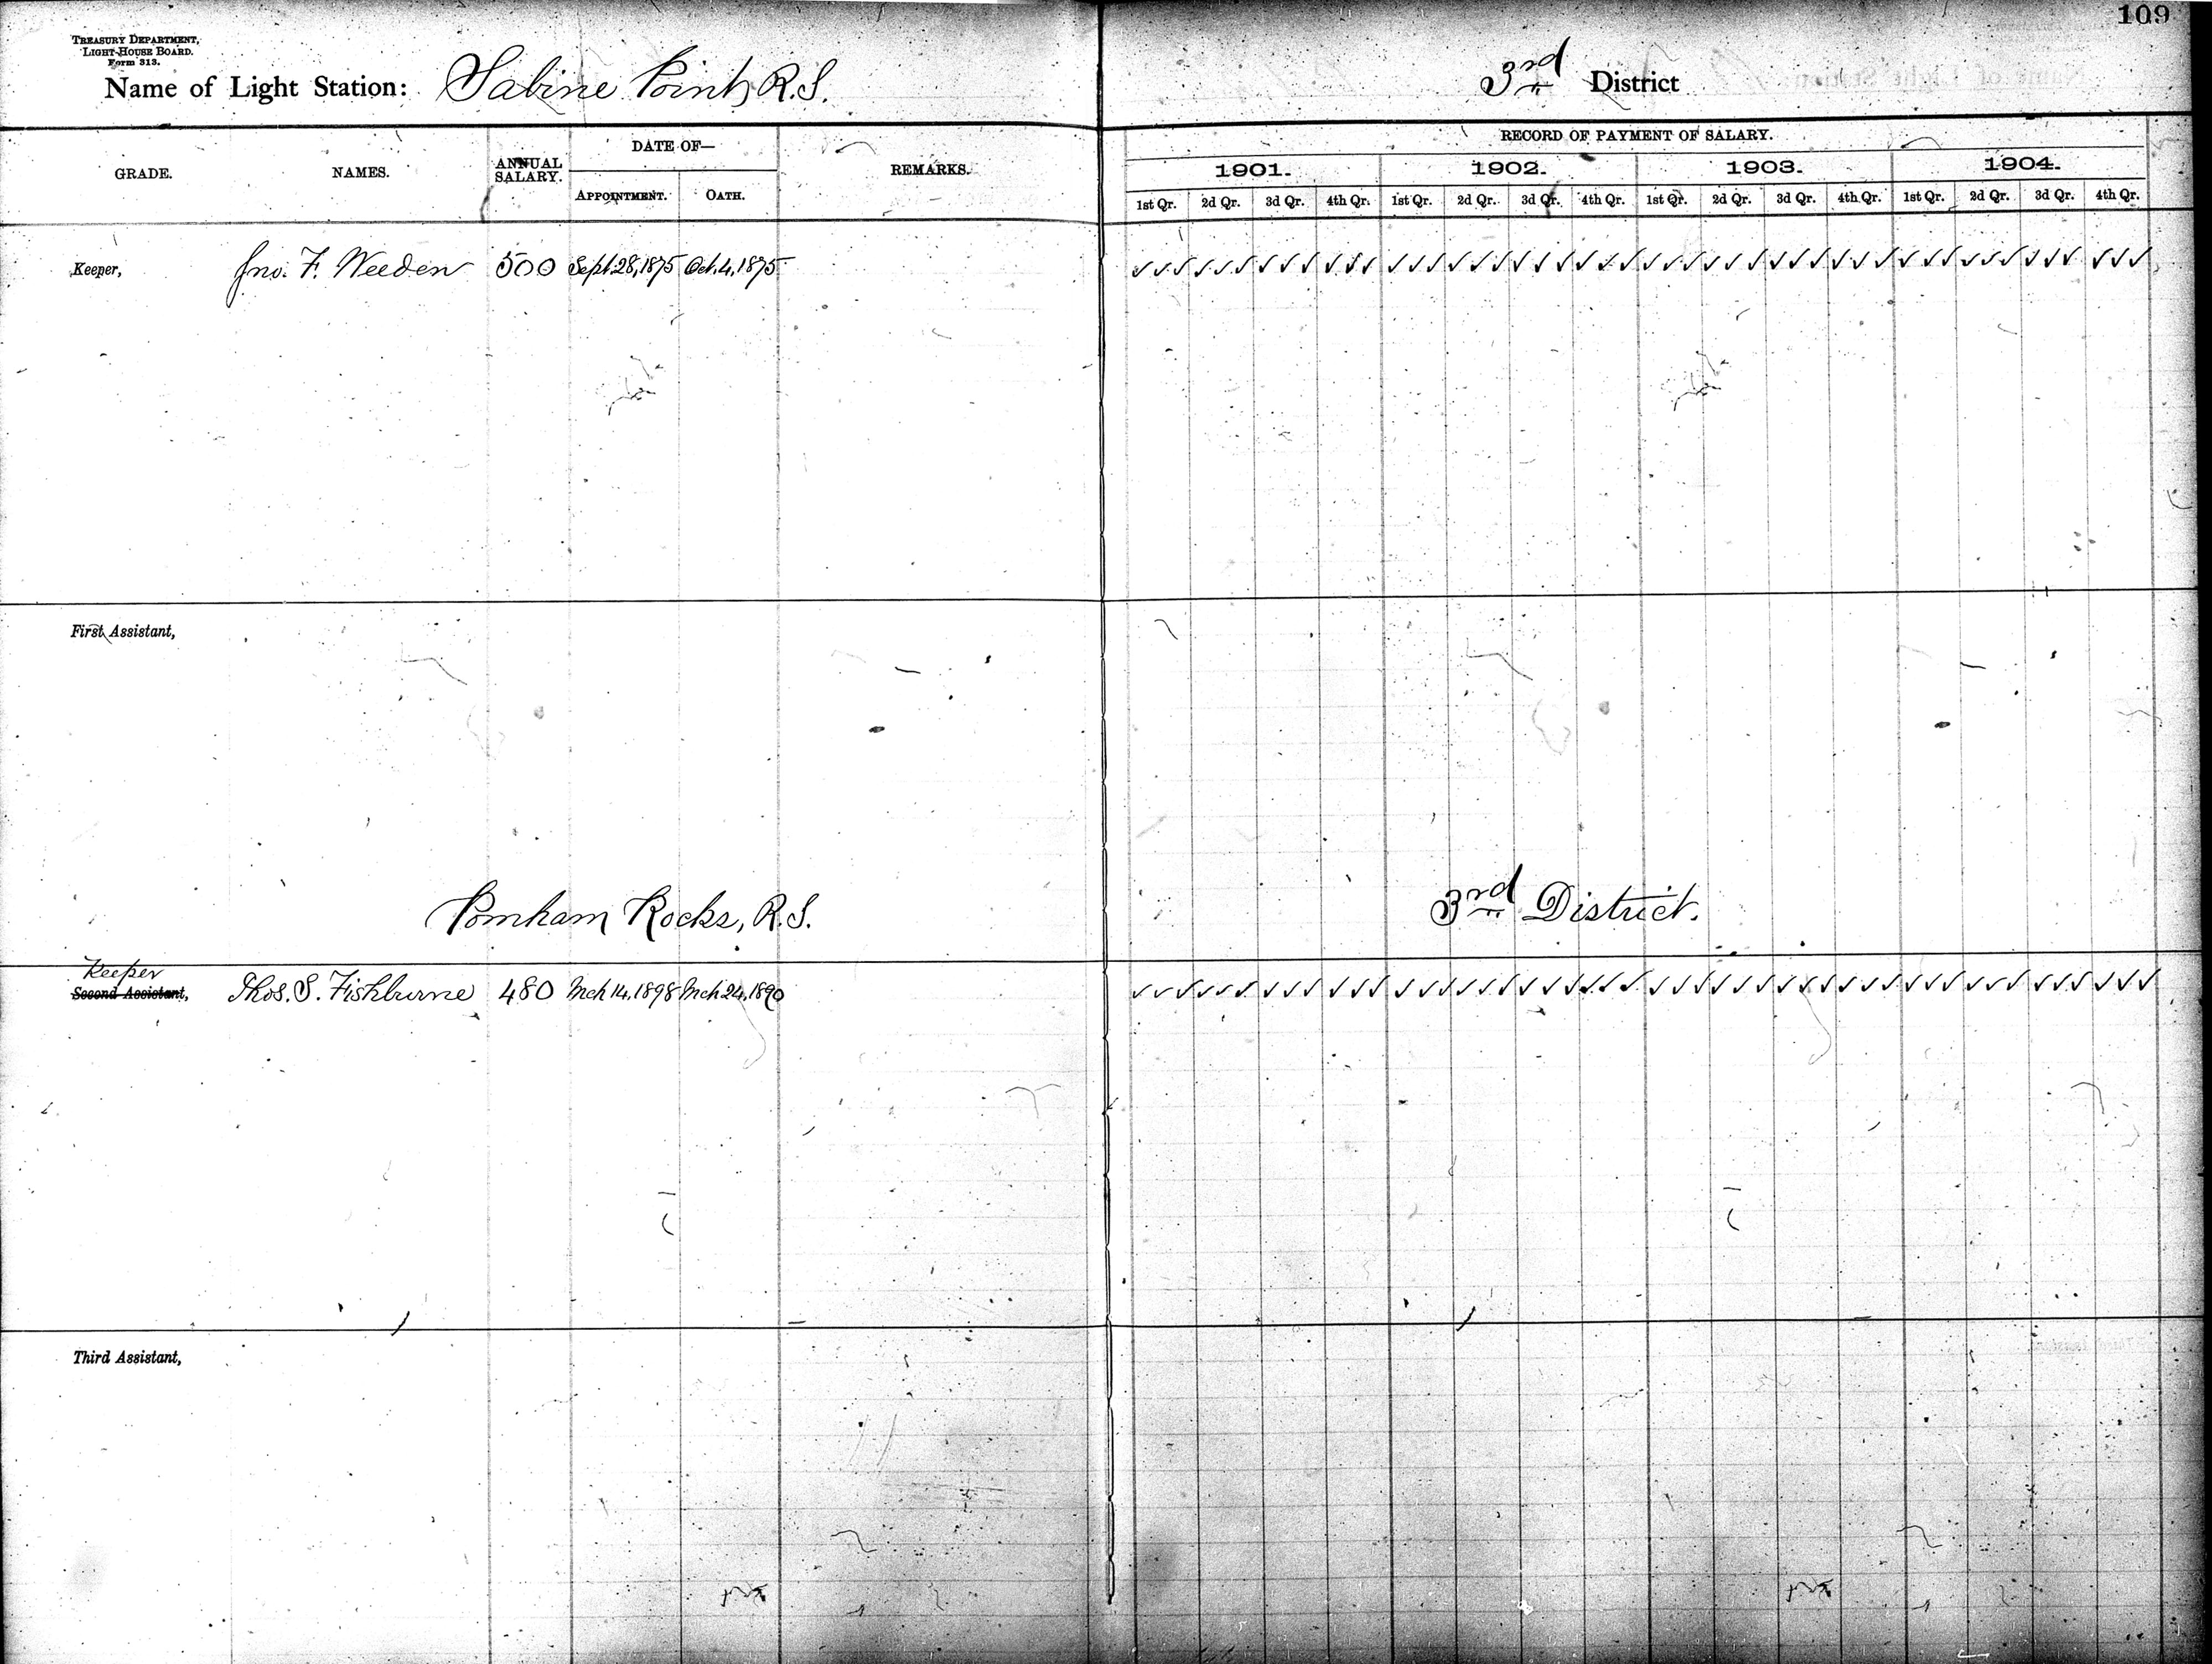 109
TREASURY DEPARTMENT,
LIGHT-HOUSE BOARD.
Form 313.
Name of Light Station: Sabine Point, R.I. 3rd District
RECORD OF PAYMENT OF SALARY.
GRADE. NAMES. ANNUAL SALARY. DATE OF— REMARKS. 1901. 1902. 1903. 1904.
APPOINTMENT. OATH. 1st Qr. 2d Qr. 3d Qr. 4th Qr. 1st Qr. 2d Qr. 3d Qr. 4th Qr. 1st Qr. 2d Qr. 3d Qr. 4th Qr. 1st Qr. 2d Qr. 3d Qr. 4th Qr.
Keeper, Jno. F. Weeden 500 Sept. 28, 1875 Oct. 4, 1875 ✓✓✓ ✓✓✓ ✓✓✓ ✓✓✓ ✓✓✓ ✓✓✓ ✓✓✓ ✓✓✓ ✓✓✓ ✓✓✓ ✓✓✓ ✓✓✓ ✓✓✓ ✓✓✓ ✓✓✓ ✓✓✓
First Assistant,
Pomham Rocks, R.I. 3rd District.
Keeper
Second Assistant, Thos. S. Fishburne 480 Mch 14, 1898 Mch 24, 1890 ✓✓✓ ✓✓✓ ✓✓✓ ✓✓✓ ✓✓✓ ✓✓✓ ✓✓✓ ✓✓✓ ✓✓✓ ✓✓✓ ✓✓✓ ✓✓✓ ✓✓✓ ✓✓✓ ✓✓✓ ✓✓✓
Third Assistant,